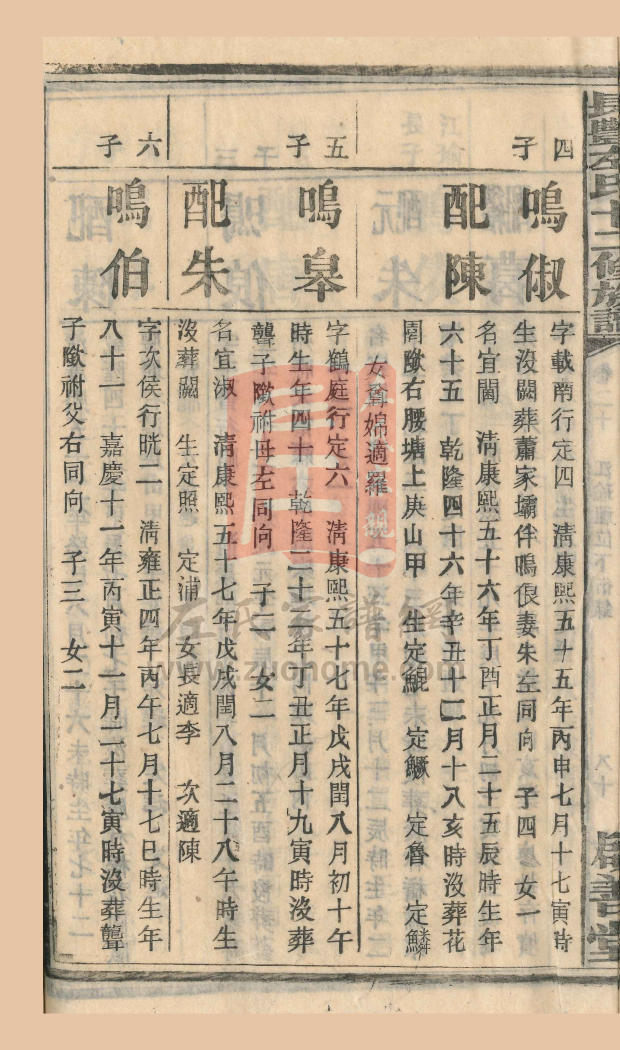 長豐左氏十二修族譜
四子
鳴俶
字載南行定四 清康熙五十五年丙申七月十七寅時
生沒闕葬蕭家壩伴鳴俍妻朱左同向 子四 女一
配陳
名宜閫 清康熙五十六年丁酉正月二十五辰時生年
六十五 乾隆四十六年辛丑十二月十八亥時沒葬花
園歟右腰塘上庚山甲 生定鯤 定鱖 定魯 定鱗
女聳婂適羅
五子
鳴皋
字鶴庭行定六 清康熙五十七年戊戌閏八月初十午
時生年四十 乾隆二十二年丁丑正月十九寅時沒葬
聾子歟祔母左同向 子二 女二
配朱
名宜淑 清康熙五十七年戊戌閏八月二十八午時生
沒葬闕 生定照 定浦 女長適李 次適陳
六子
鳴伯
字次侯行晄二 清雍正四年丙午七月十七巳時生年
八十一 嘉慶十一年丙寅十一月二十七寅時沒葬聾
子歟祔父右同向 子三 女二
左氏家譜網
www.zuohome.com